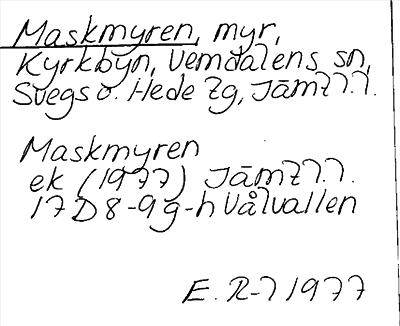 Maskmyren, myr,
Kyrkbyn, Vemdalens sn,
Svegs o. Hede tg, Jämtl.l.
Maskmyren
ek (1977) Jämtl.l.
17D 8-9 g-h Vålvallen
E. R-l 1977